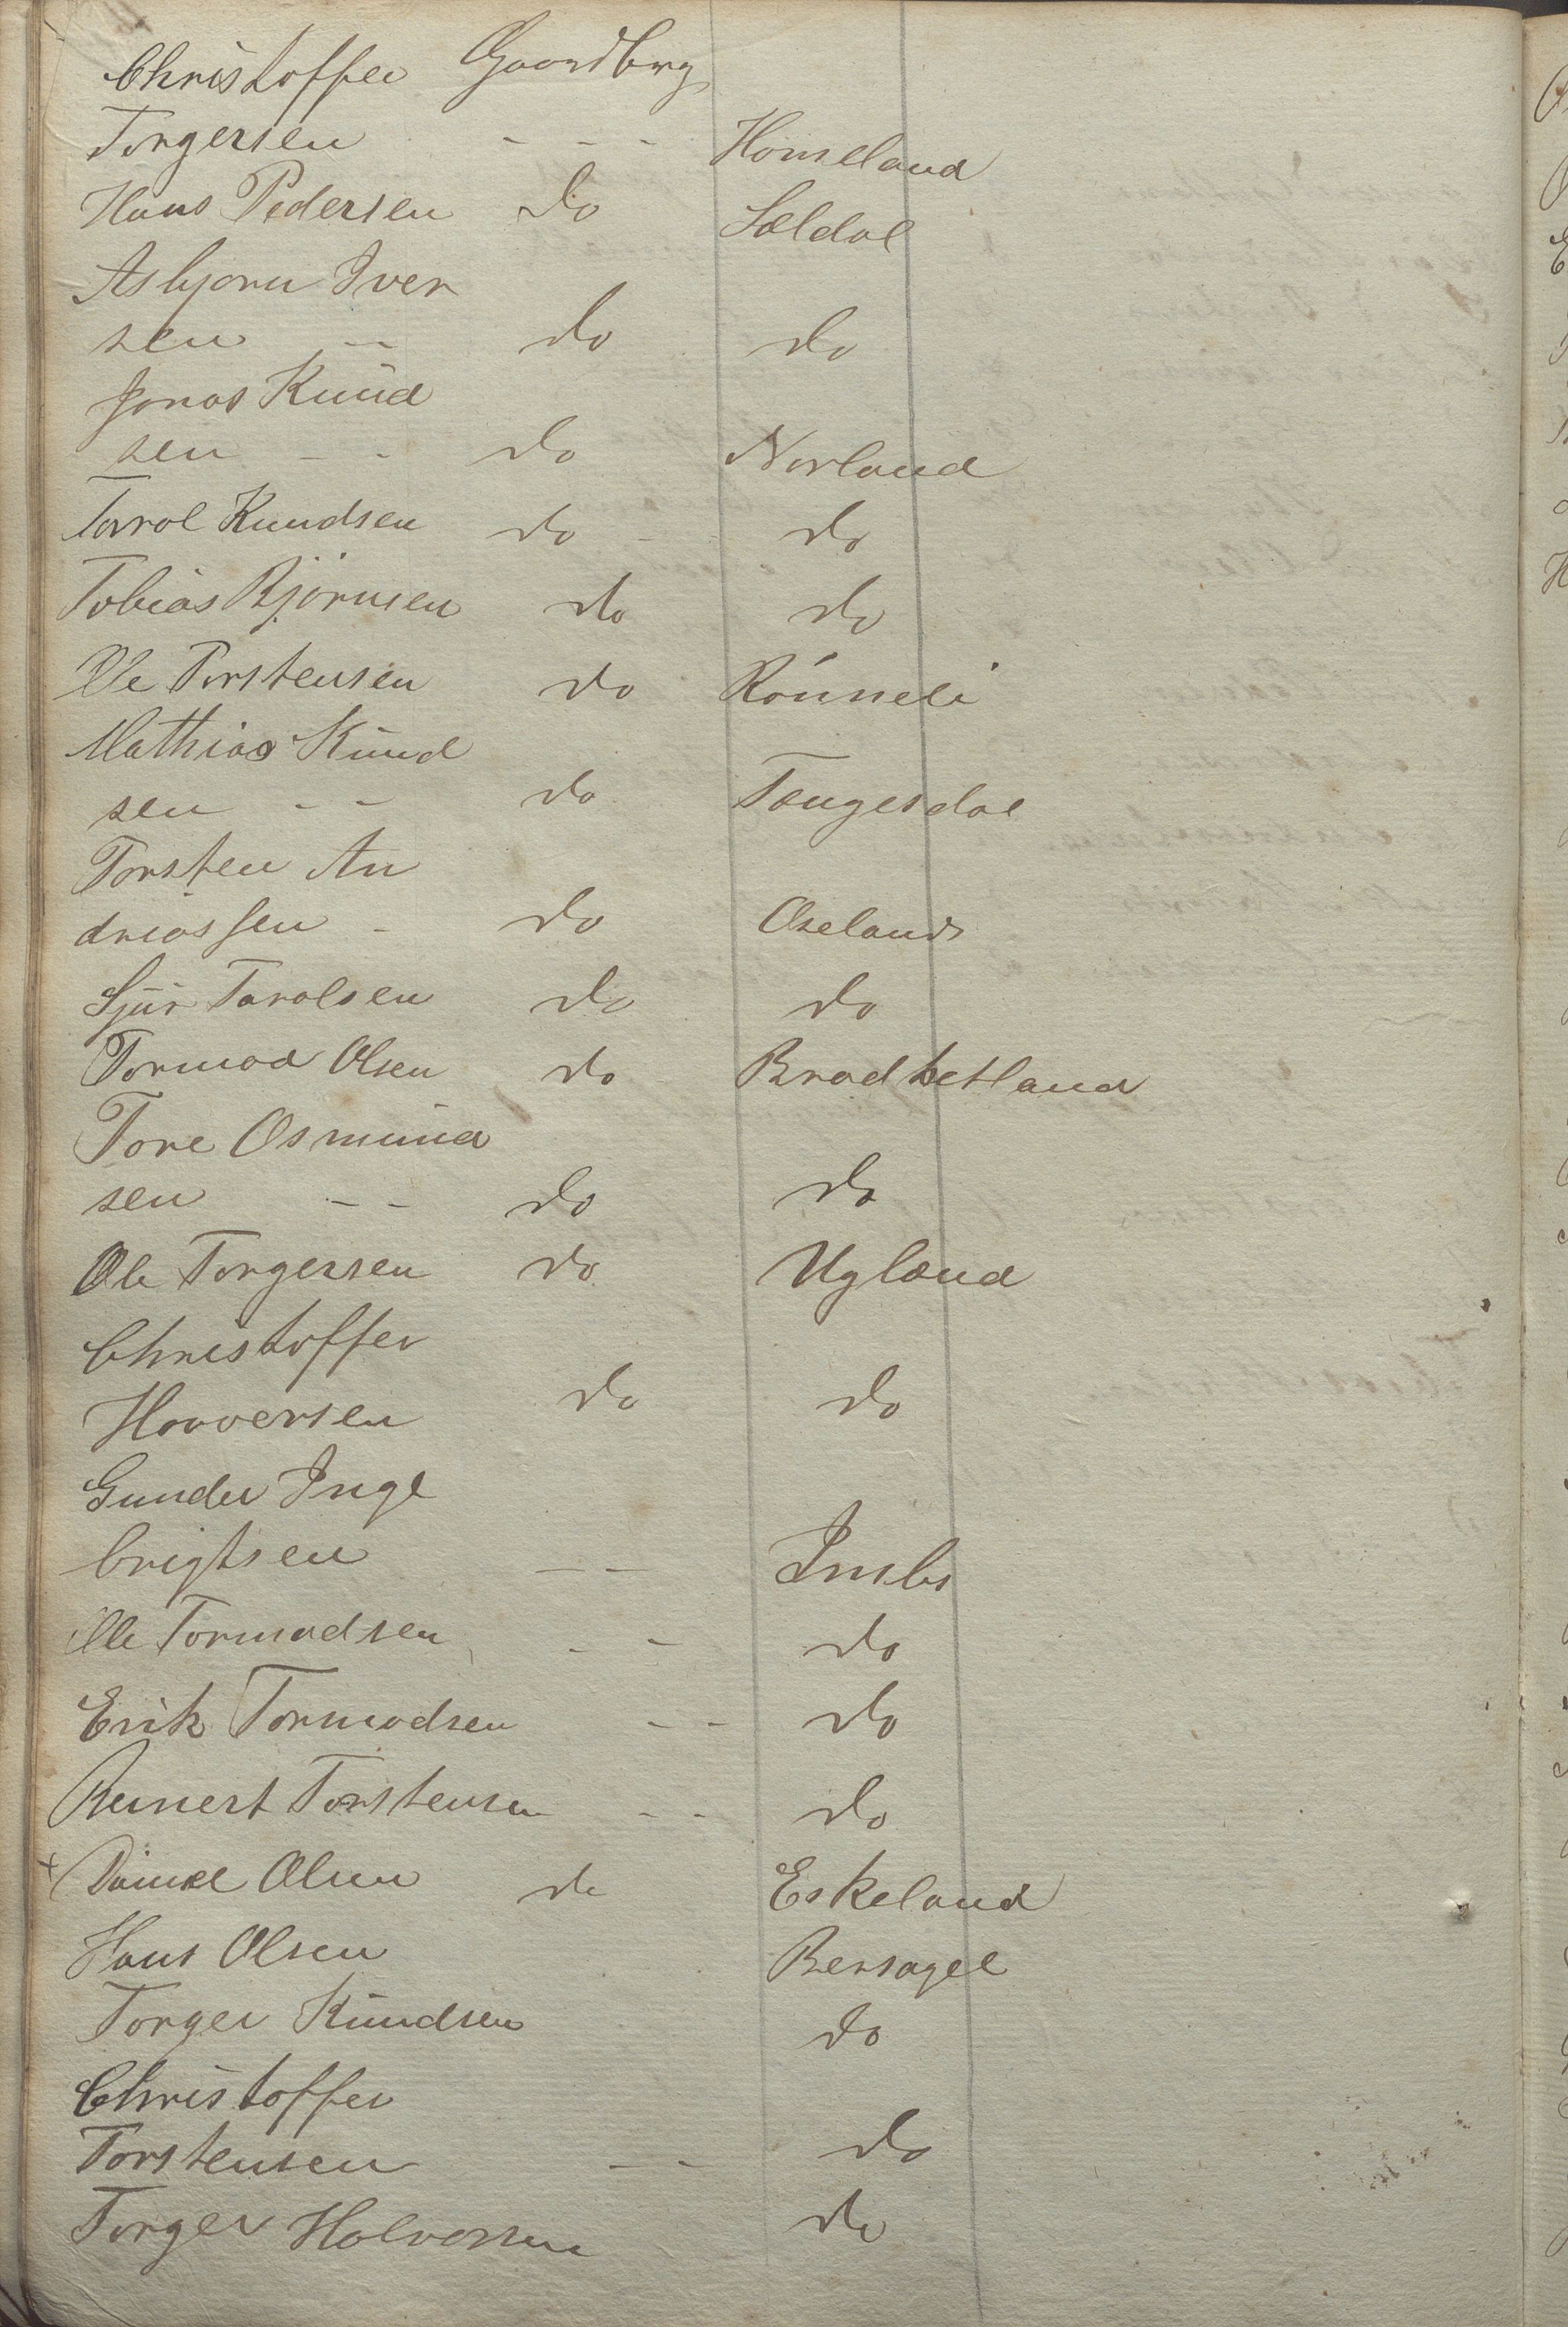 Christoffer Gaardbrg
Torgersen - - - Homseland
Hans Pedersen do Sældal
Asbjørn Iver
sen - do do
Jonas Knud
sen - - do Norland
Tarol Knudsen do - do
Tobias Bjørnsen do do
Ole Torstensen do Rønneli
Mathias Knud
sen - - do Tengesdal
Torsten An
driassen - do Oseland
Sjur Tarolsen do do
Tormod Olsen do Bradhetland
Tore Osmund
sen - - do do
Ole Torgersen do Ugland
Christoffer
Hovversen do do
Gunder Inge
brigtsen - - Imsbs
Ole Tormodsen - - do
Erik Tormodsen - - do
Reinert Torstensen - - do
+ Daniel Olsen do Eskeland
Hans Olsen Bersagel
Torger Knudsen do
Christoffer
Torstensen - - do
Torger Holversen do